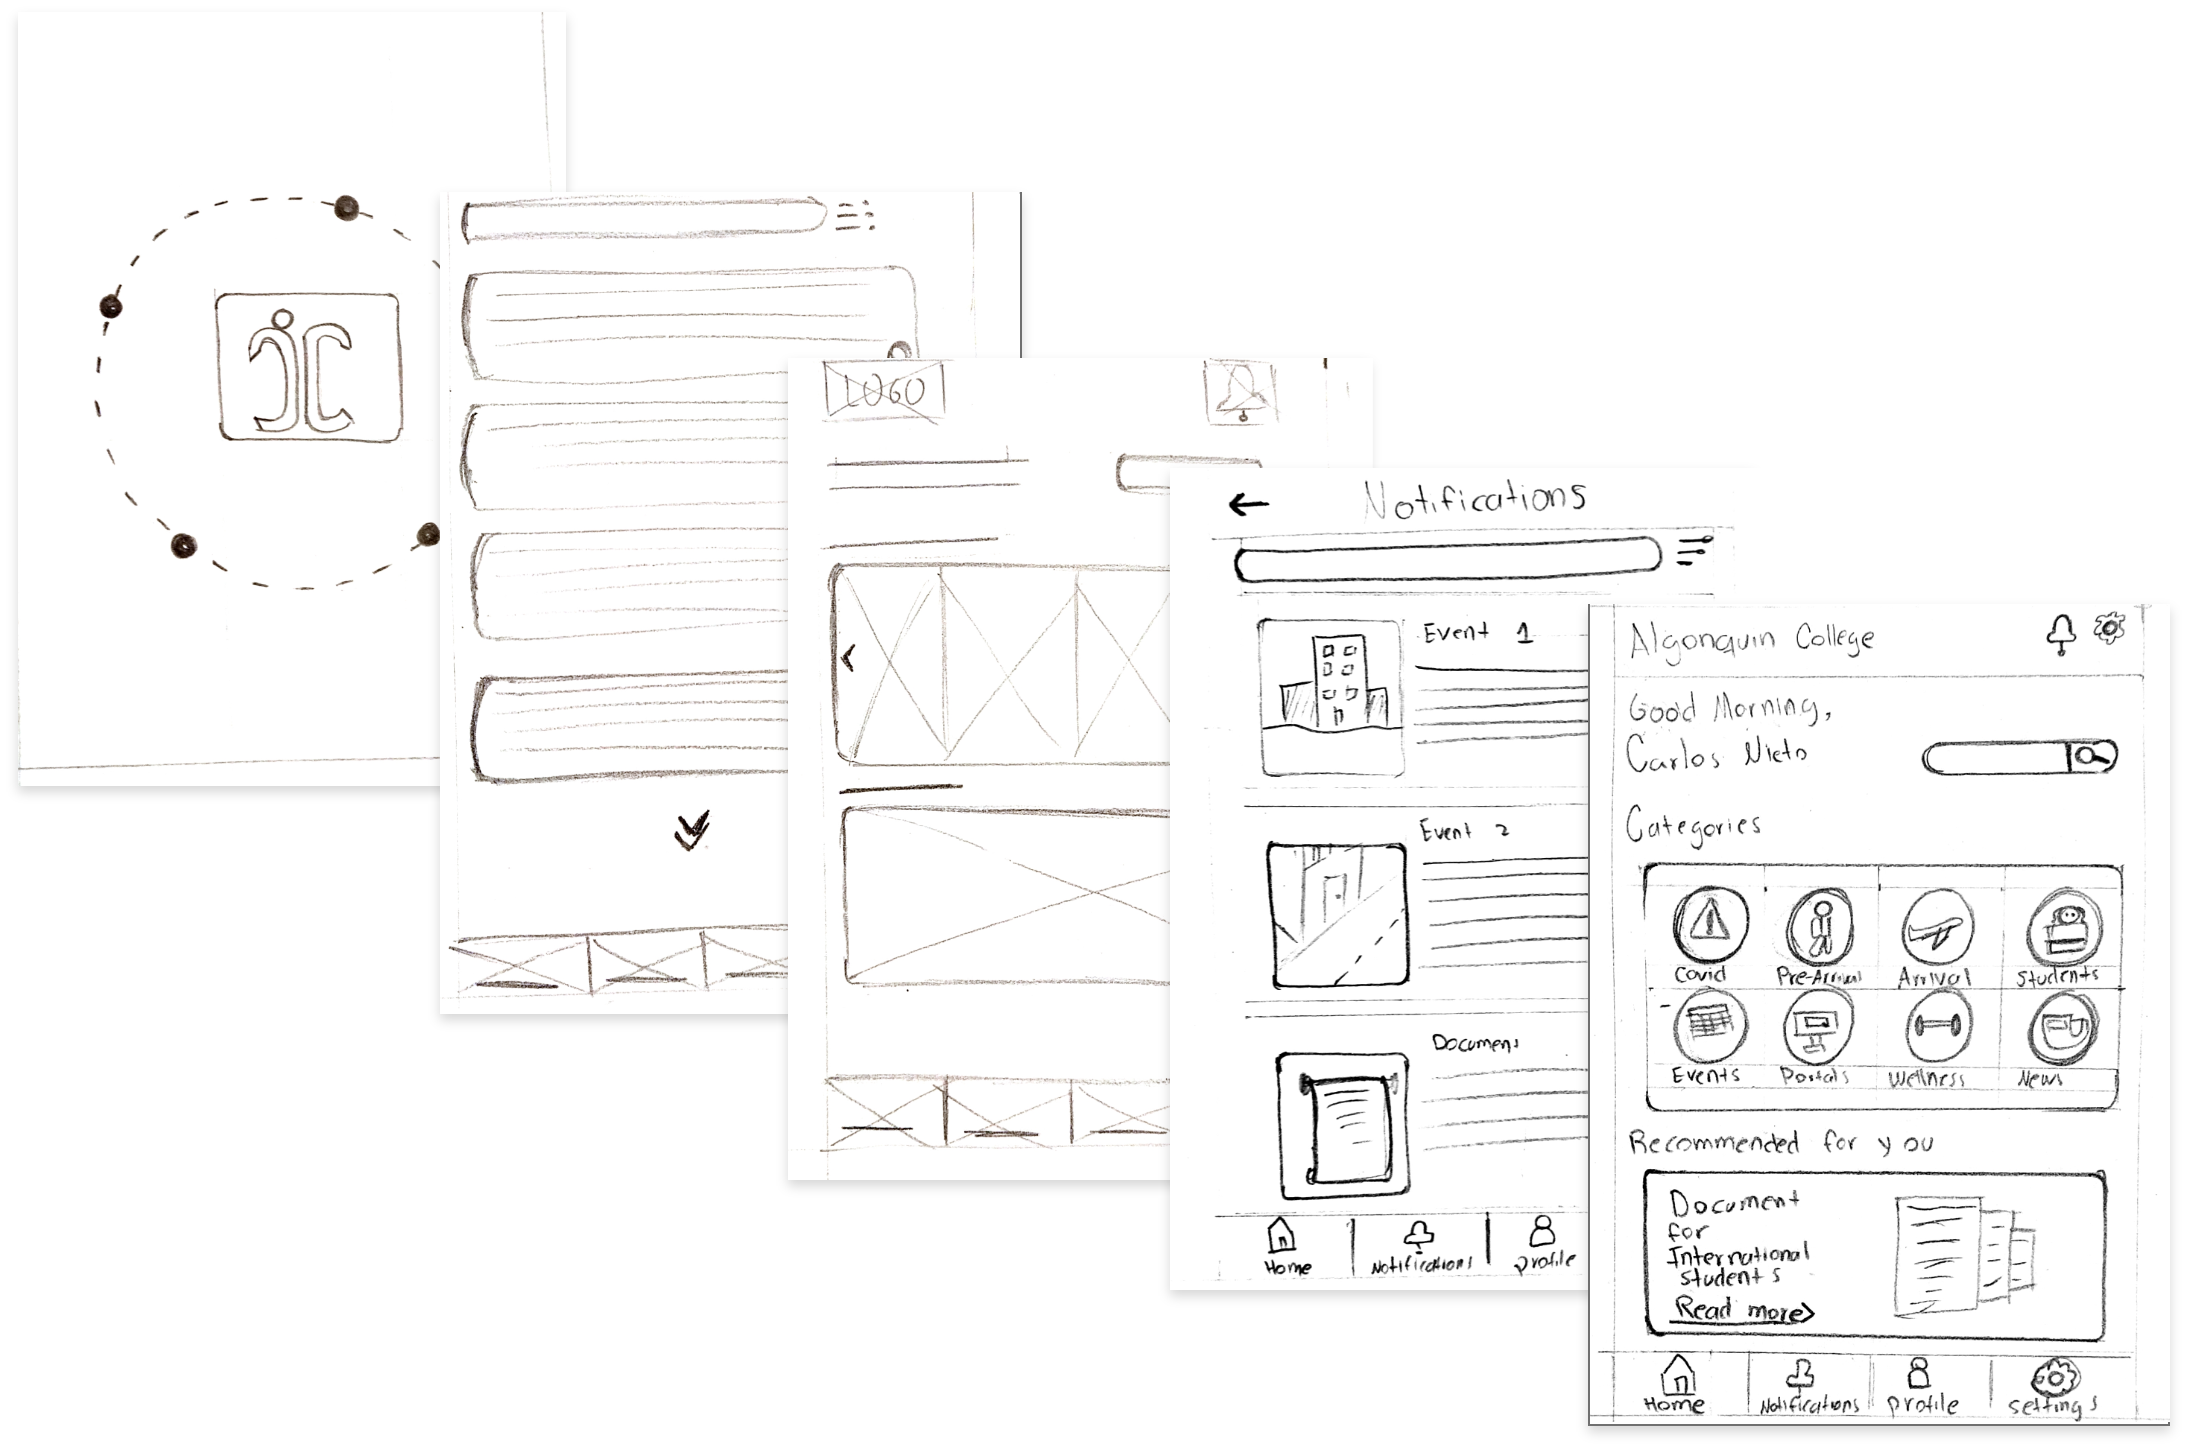 LOGO
Notifications
Event 1
Event 2
Document
Home
Notifications
profile
Algonquin College
Good Morning,
Carlos Nieto
Categories
Covid
Pre-Arrival
Arrival
Students
Events
Portals
Wellness
News
Recommended for you
Document
for
International
students
Read more>
Home
Notifications
profile
settings